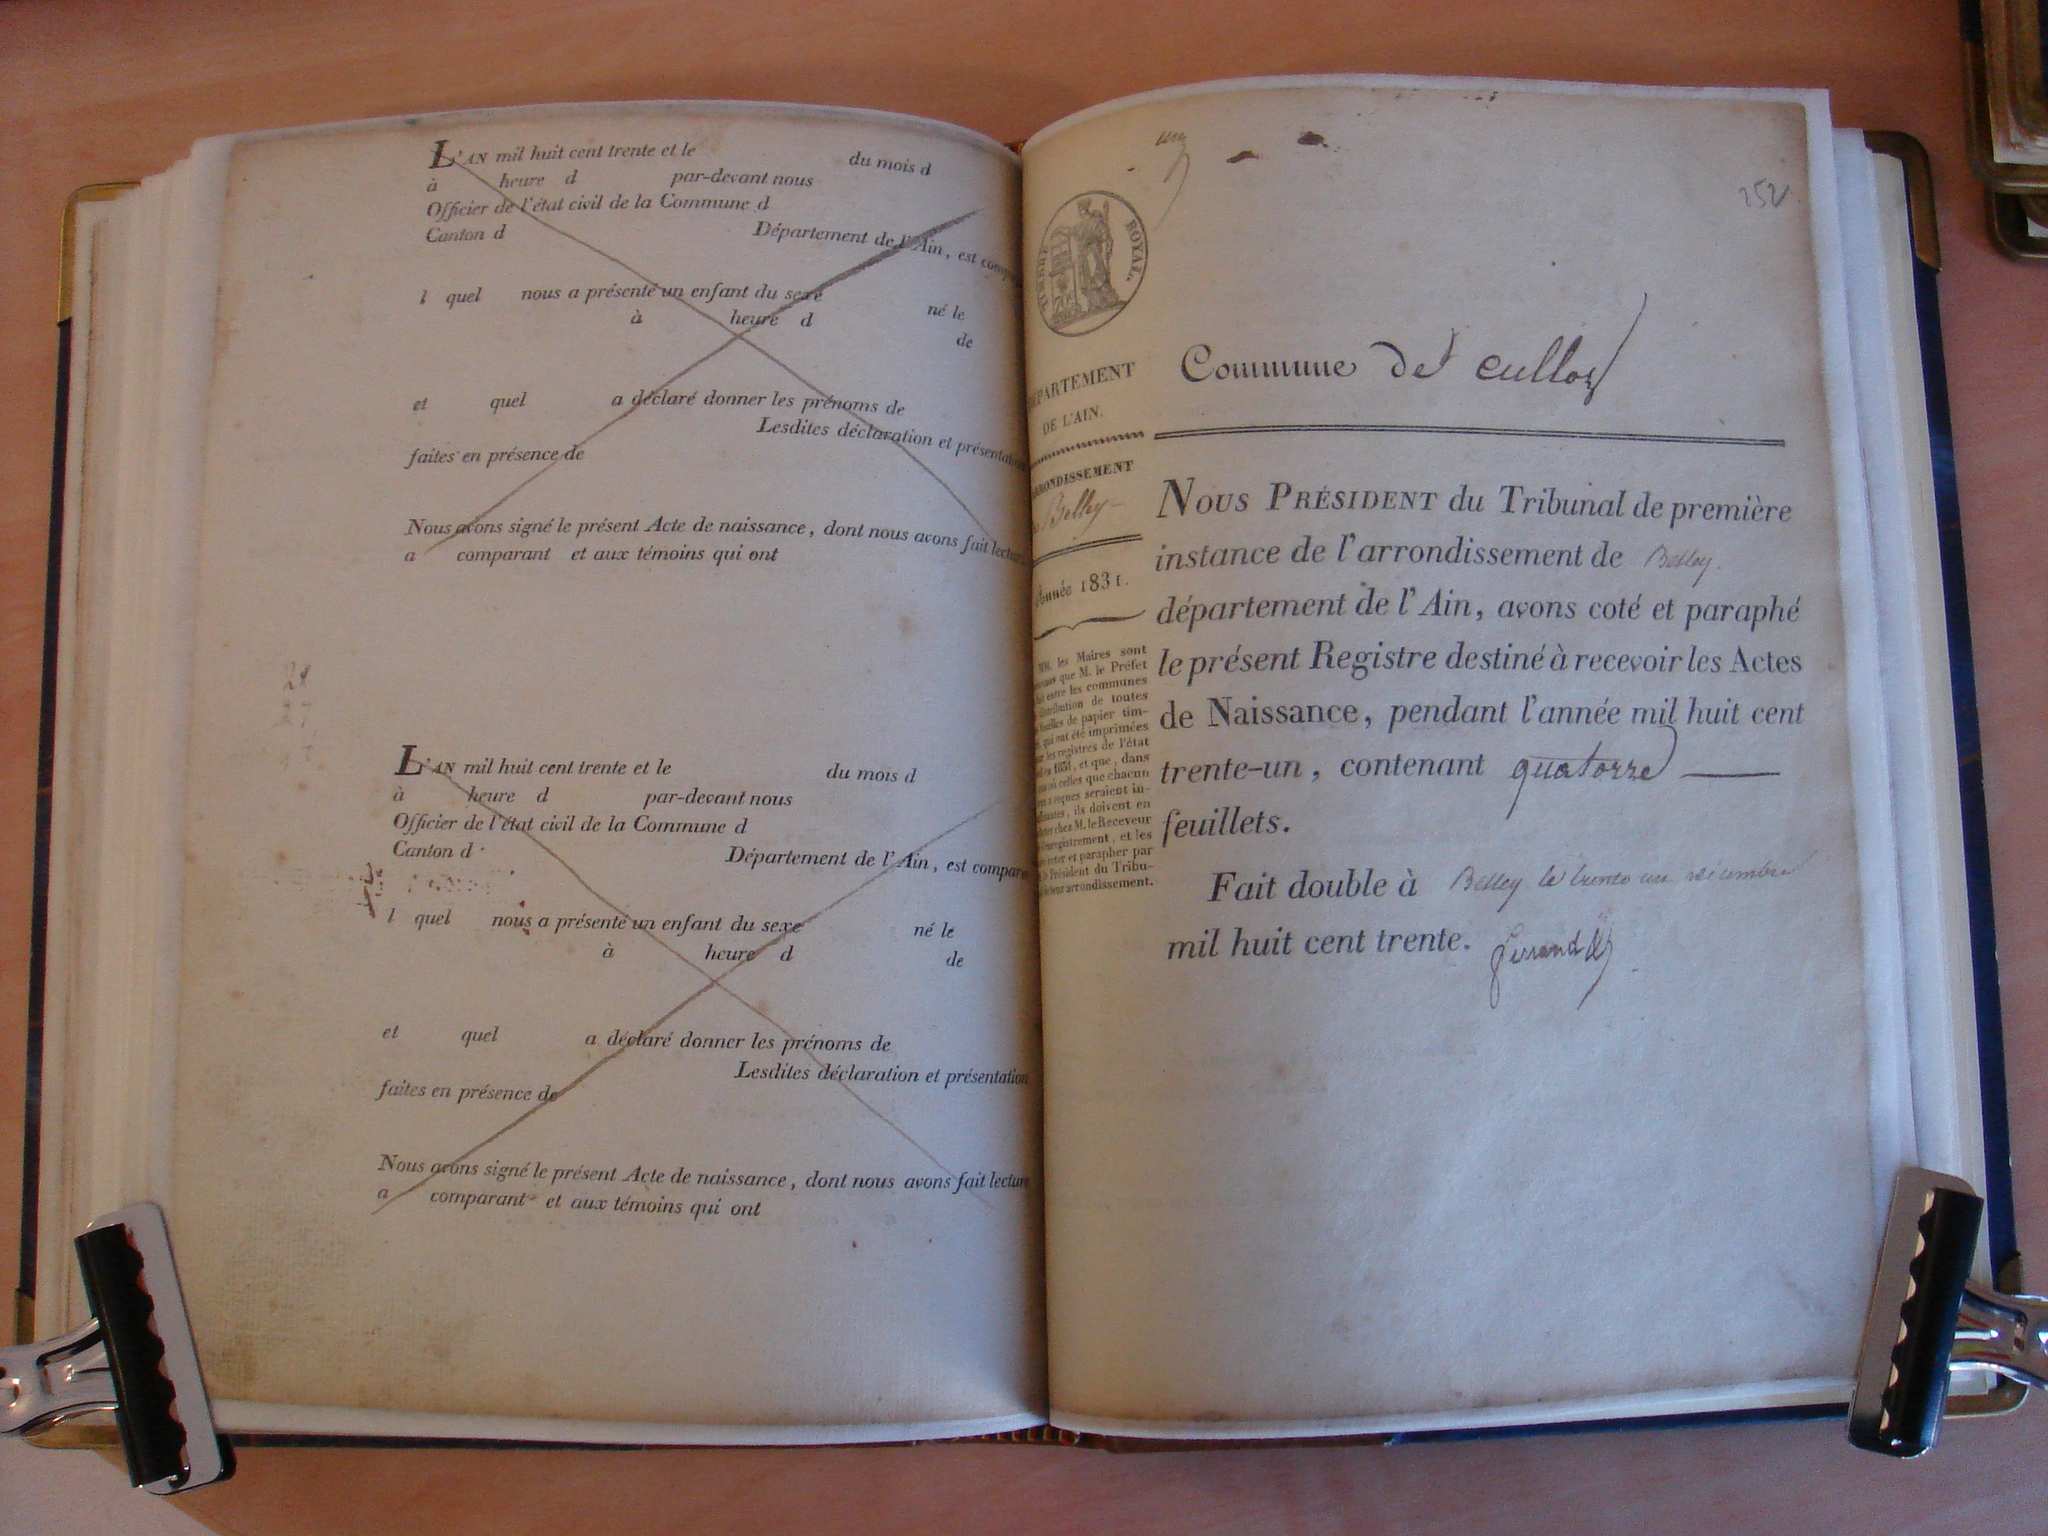 L'AN mil huit cent trente et le du mois d
à heure d par-devant nous
Officier de l'état civil de la Commune d
Canton d Département de l'Ain, est comp
l quel nous a présenté un enfant du sexe né le
à heure d de
et quel a déclaré donner les prénoms de
Lesdites déclaration et présentation
faites en présence de
Nous avons signé le présent Acte de naissance, dont nous avons fait lecture
a comparant et aux témoins qui ont
L'AN mil huit cent trente et le du mois d
à heure d par-devant nous
Officier de l'état civil de la Commune d
Canton d Département de l'Ain, est compar
l quel nous a présenté un enfant du sexe né le
à heure d de
et quel a déclaré donner les prénoms de
Lesdites déclaration et présentation
faites en présence de
Nous avons signé le présent Acte de naissance, dont nous avons fait lecture
a comparant et aux témoins qui ont
un
252
TIMBRE ROYAL
PARTEMENT
DE L'AIN.
RONDISSEMENT
Belley
Année 1831.
MM. les Maires sont
que M. le Préfet
entre les communes
distribution de toutes
feuilles de papier tim-
qui ont été imprimées
les registres de l'état
en 1831, et que, dans
où celles que chacun
reçues seraient in-
, ils doivent en
chez M. le Receveur
enregistrement, et les
coter et parapher par
le Président du Tribu-
leur arrondissement.
Commune de culloz
NOUS PRÉSIDENT du Tribunal de première
instance de l'arrondissement de Belley
département de l'Ain, avons coté et paraphé
le présent Registre destiné à recevoir les Actes
de Naissance, pendant l'année mil huit cent
trente-un, contenant quatorze
feuillets.
Fait double à Belley le trente un décembre
mil huit cent trente.